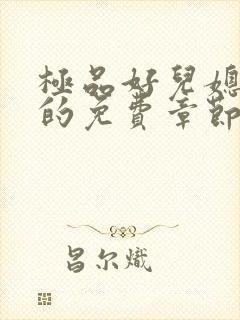 極品好兒媳
的免費章節
昌尔熾